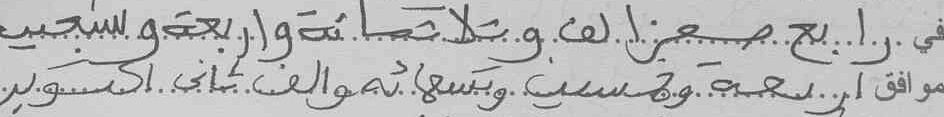 في رابع صفر الف وتلاتمائة واربعة وسبعين
موافق اربعة وخمسين وتسعمائه والف ثانى اكتوبر